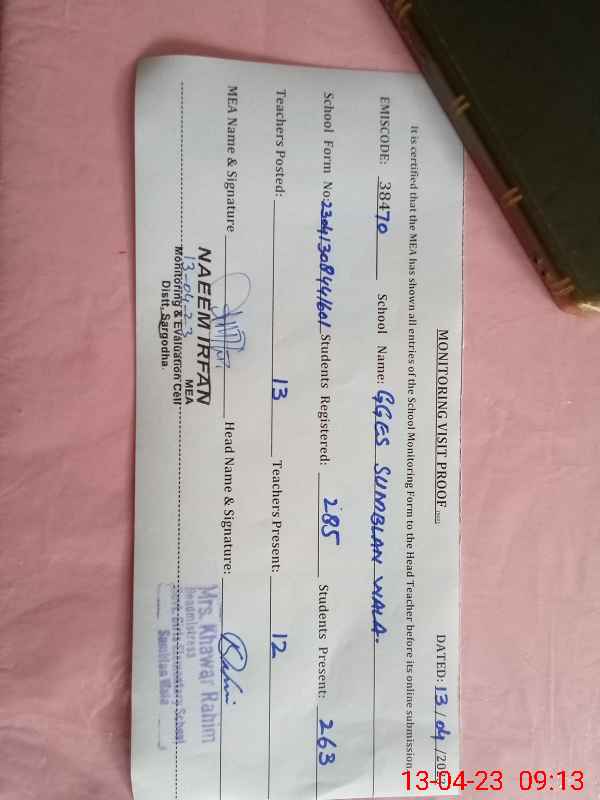 MONITORING VISIT PROOF
DATED: 13/04/202
It is certified that the MEA has shown all entries of the School Monitoring Form to the Head Teacher before its online submission.
EMISCODE: 38470 School Name: GGES SUMBLAN WALA.
School Form No: Students Registered: 285 Students Present: 263
Teachers Posted: 13 Teachers Present: 12
MEA Name & Signature Head Name & Signature:
NAEEM IRFAN
MEA
13-04-23
Monitoring & Evaluation Cell
Distt. Sargodha.
Mrs. Khawar Rahim
Headmistress
Govt. Girls Elementary School
Sumblan Wala
13-04-23 09:13